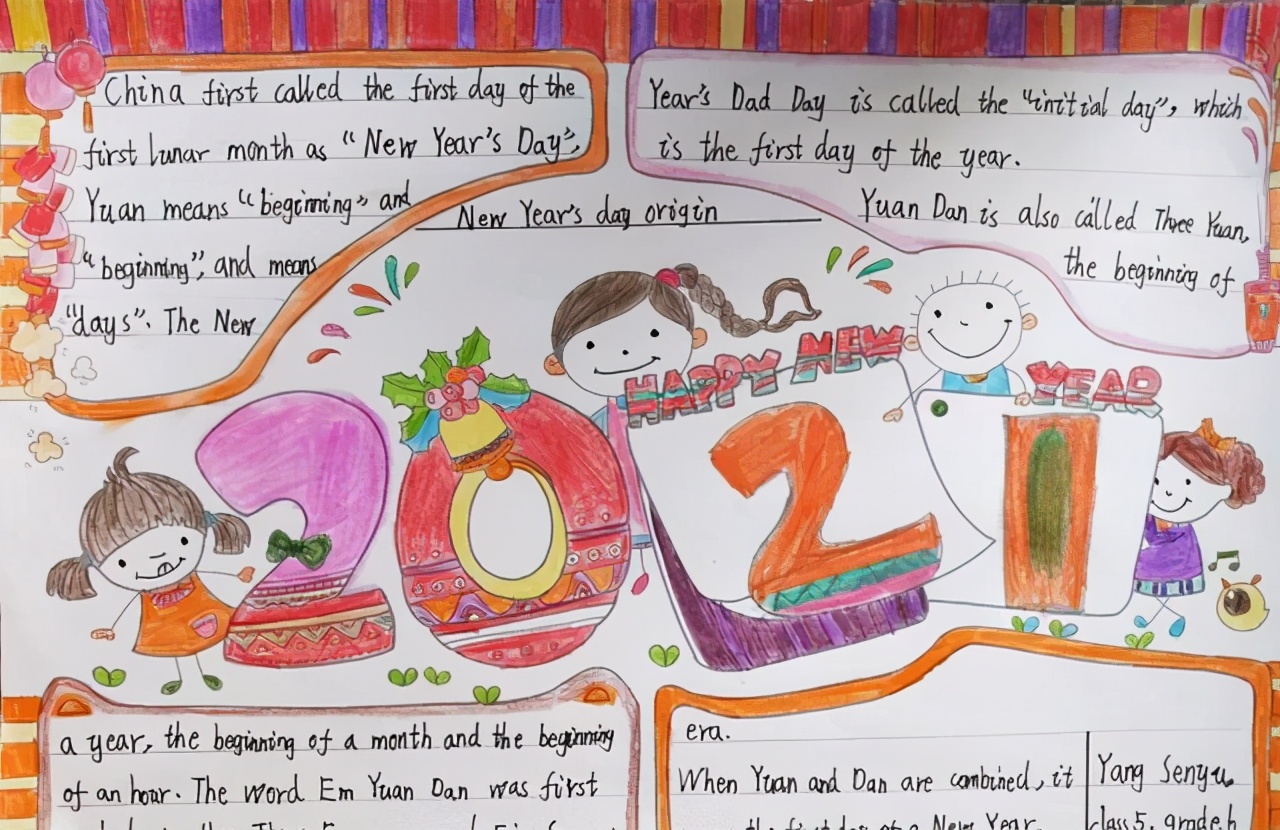 China first called the first day of the
first lunar month as "New Year's Day",
Yuan means "beginning" and
"beginning", and means
"days". The New
New Year's day origin
Year's Dad Day is called the "initial day", which
is the first day of the year.
Yuan Dan is also called Three Yuan,
the beginning of
HAPPY NEW YEAR
2021
a year, the beginning of a month and the beginning
of an hour. The word Em Yuan Dan was first
era.
When Yuan and Dan are combined, it
the first day of a New Year.
Yang Senyu
class 5, grade